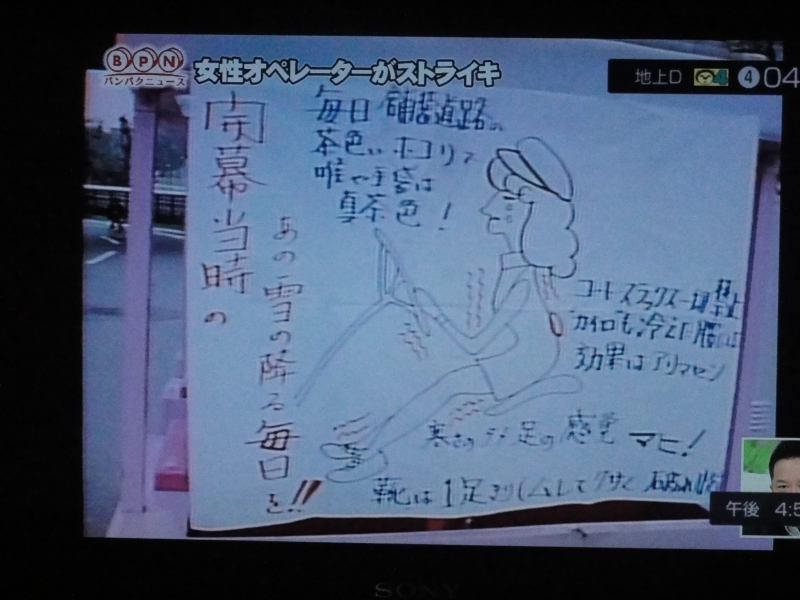 BPN
バンパクニュース
女性オペレーターがストライキ
地上D
4
04
開幕当時の
あの雪の降る毎日を!!
毎日 舗装道路の
茶色いホコリで
唯や手袋は
真茶色!
コートスラックス一切禁止
カイロも冷えた腰には
効果はアリマセン
寒さのタメ足の感覚 マヒ!
靴は1足きり(ムレてクサく
午後 4:5
SONY